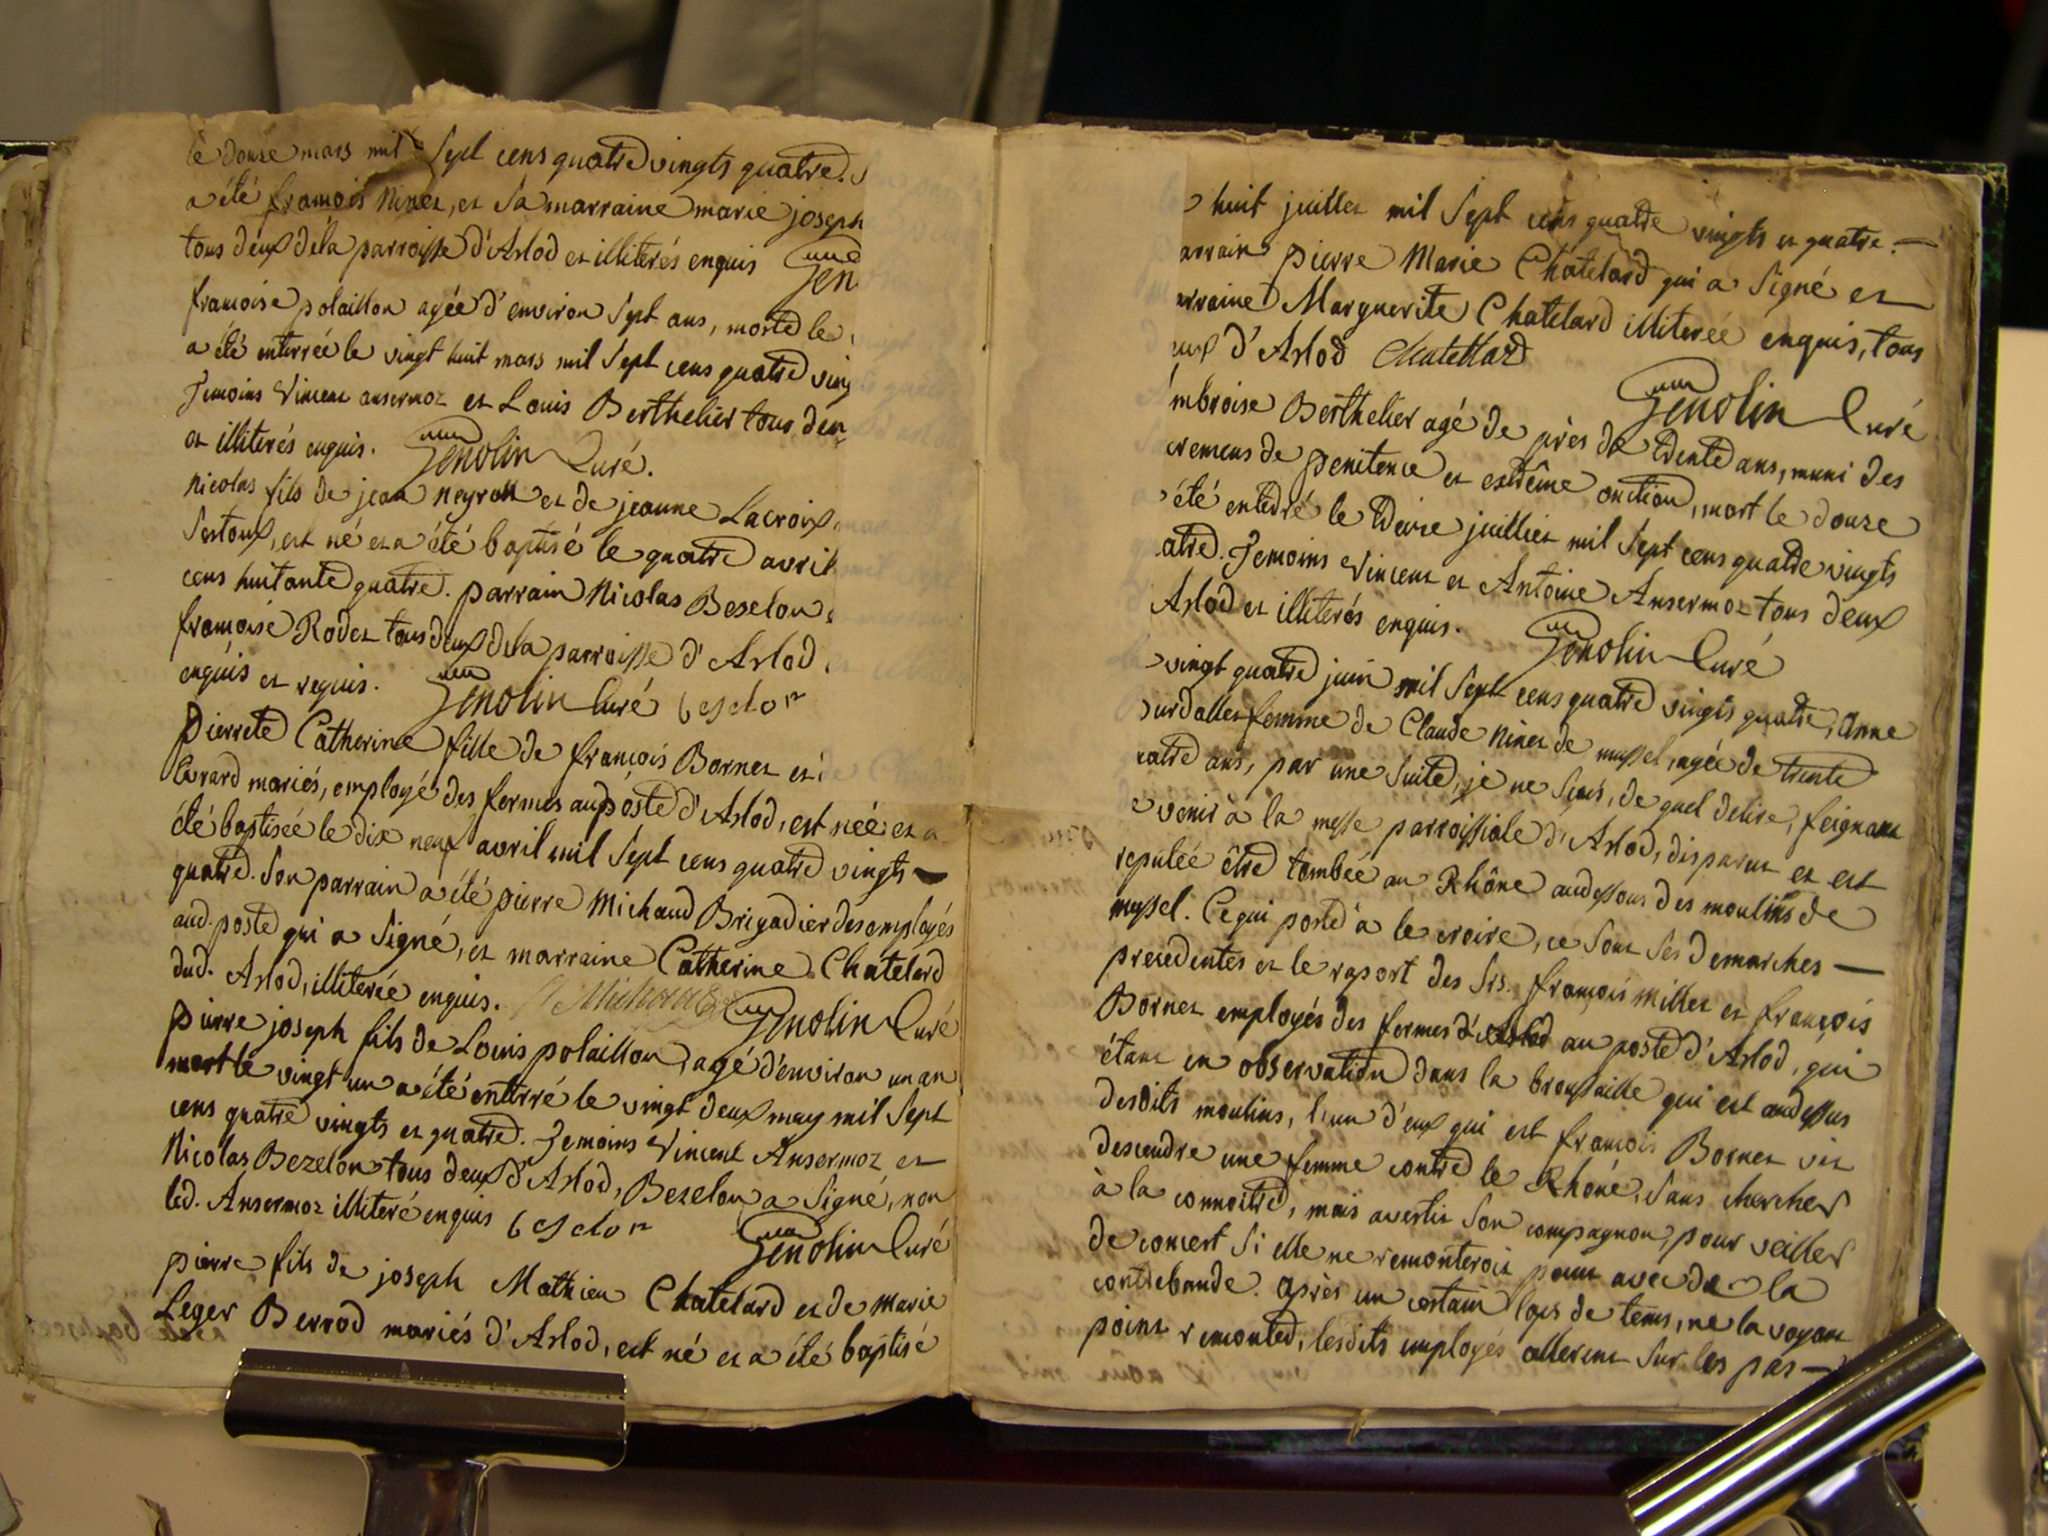 le douze mars mil Sept cens quatre vingts quatre.
a été françois Ninet, et Sa marraine marie joseph
tous deux déla parroisse d'Arlod et illiterés enquis
Gen
françoise polaillon agée d'environ Sept ans, morte le
a été enterrée le vingt huit mars mil Sept cens quatre ving
Temoins Vincent ansermoz et Louis Berthelier tous deu
et illiterés enquis. Genolin Curé.
Nicolas fils de jean Neyron et de jeanne Lacroix
Sertoux, est né et a été baptisé le quatre avril
cens huitante quatre. parrain Nicolas Beselon
françoise Rodet tous deux dela parroisse d'Arlod
enquis et requis. Genolin Curé beselon
Pierrete Catherine fille de françois Bornet et
Evrard mariés, employé des fermes au poste d'Arlod, est née et a
été baptisée le dix neuf avril mil Sept cens quatre vingts
quatre. Son parrain a été pierre Michaud Brigadier des employés
aud. poste qui a Signé, et marraine Catherine Chatelard
dud. Arlod, illiterée enquis. Michaud Genolin Curé
pierre joseph fils de Louis polaillon, agé d'environ un an
mort le vingt un a été enterré le vingt deux may mil Sept
cens quatre vingts et quatre. Temoins Vincent Ansermoz et
Nicolas Bezelon tous deux d'Arlod, Bezelon a Signé, non
led. Ansermoz illiteré enquis beselon Genolin Curé
pierre fils de joseph Mathieu Chatelard et de Marie
Leger Berrod mariés d'Arlod, est né et a été baptisé
huit juillet mil Sept cens quatre vingts et quatre.
arrain pierre Marie Chatelard qui a Signé et
rraine Marguerite Chatelard illiterée enquis, tous
eux d'Arlod Chatellard
Genolin Curé
mbroise Berthelier agé de près de trente ans, muni des
cremens de penitence et extrême onction, mort le douze
été enterré le treize juillet mil Sept cens quatre vingts
atre. Temoins Vincent et Antoine Ansermoz tous deux
Arlod et illiterés enquis. Genolin Curé
vingt quatre juin mil Sept cens quatre vingts quatre, anne
ourdallet femme de Claude Ninet de mussel, agée de trente
uatre ans, par une Suite, je ne Sçais, de quel delire, feignant
e venir à la messe parroissiale d'Arlod, disparut et est
reputée être tombée au Rhône audessous des moulins de
mussel. Ce qui porte à le croire, ce Sont Ses demarches
precedentes et le raport des Srs. françois Millet et françois
Bornet employés des fermes d'Arlod au poste d'Arlod, qui
étant en observation dans la broussaille qui est audessus
desdits moulins, l'un d'eux qui est françois Bornet vit
descendre une femme contre le Rhône, Sans chercher
à la connoitre, mais avertit Son compagnon, pour veiller
de concert Si elle ne remonteroit point avec de la
contrebande. après un certain laps de tems, ne la voyant
point remonter, lesdits employés allerent Sur les pas